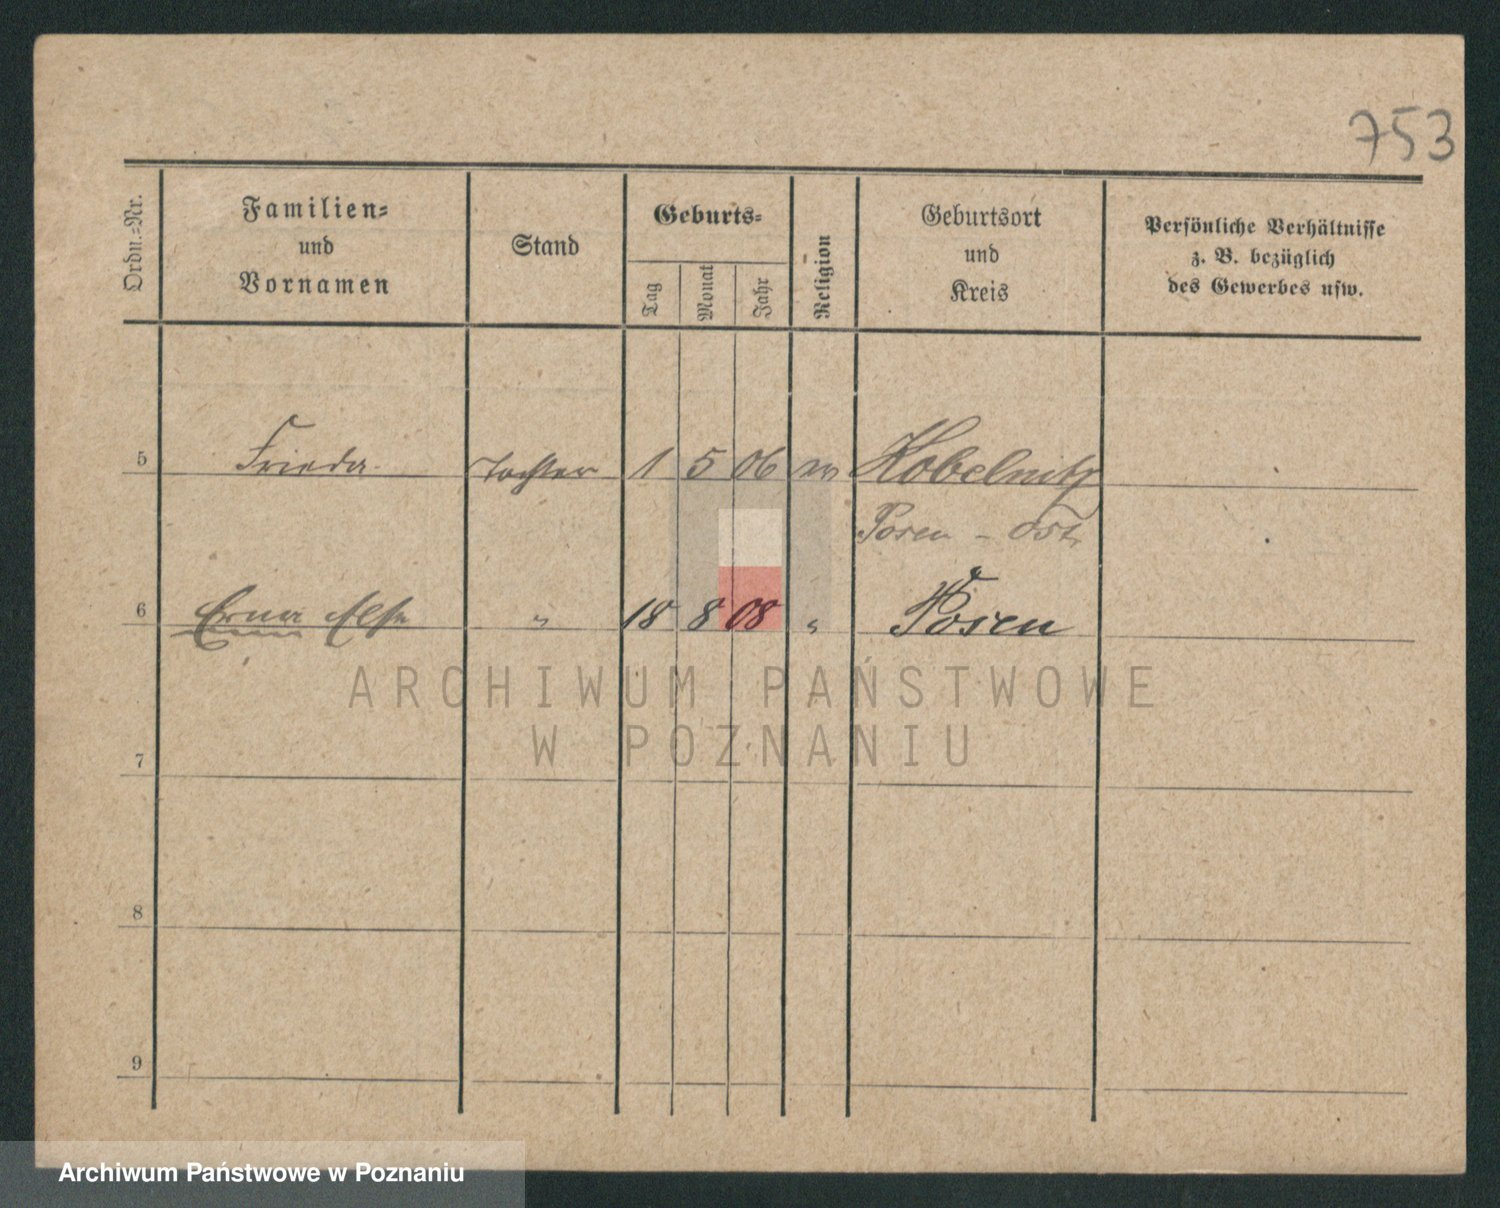 753
Ordn.-Nr.
Familien-
und
Vornamen
Stand
Geburts-
Tag
Monat
Jahr
Religion
Geburtsort
und
Kreis
Persönliche Verhältnisse
z. B. bezüglich
des Gewerbes usw.
5 Frieda Tochter 1 5 06 Kobelnitz
Posen - Ost
6 Erna Else " 18 8 08 " Posen
ARCHIWUM PAŃSTWOWE
W POZNANIU
7
8
9
Archiwum Państwowe w Poznaniu